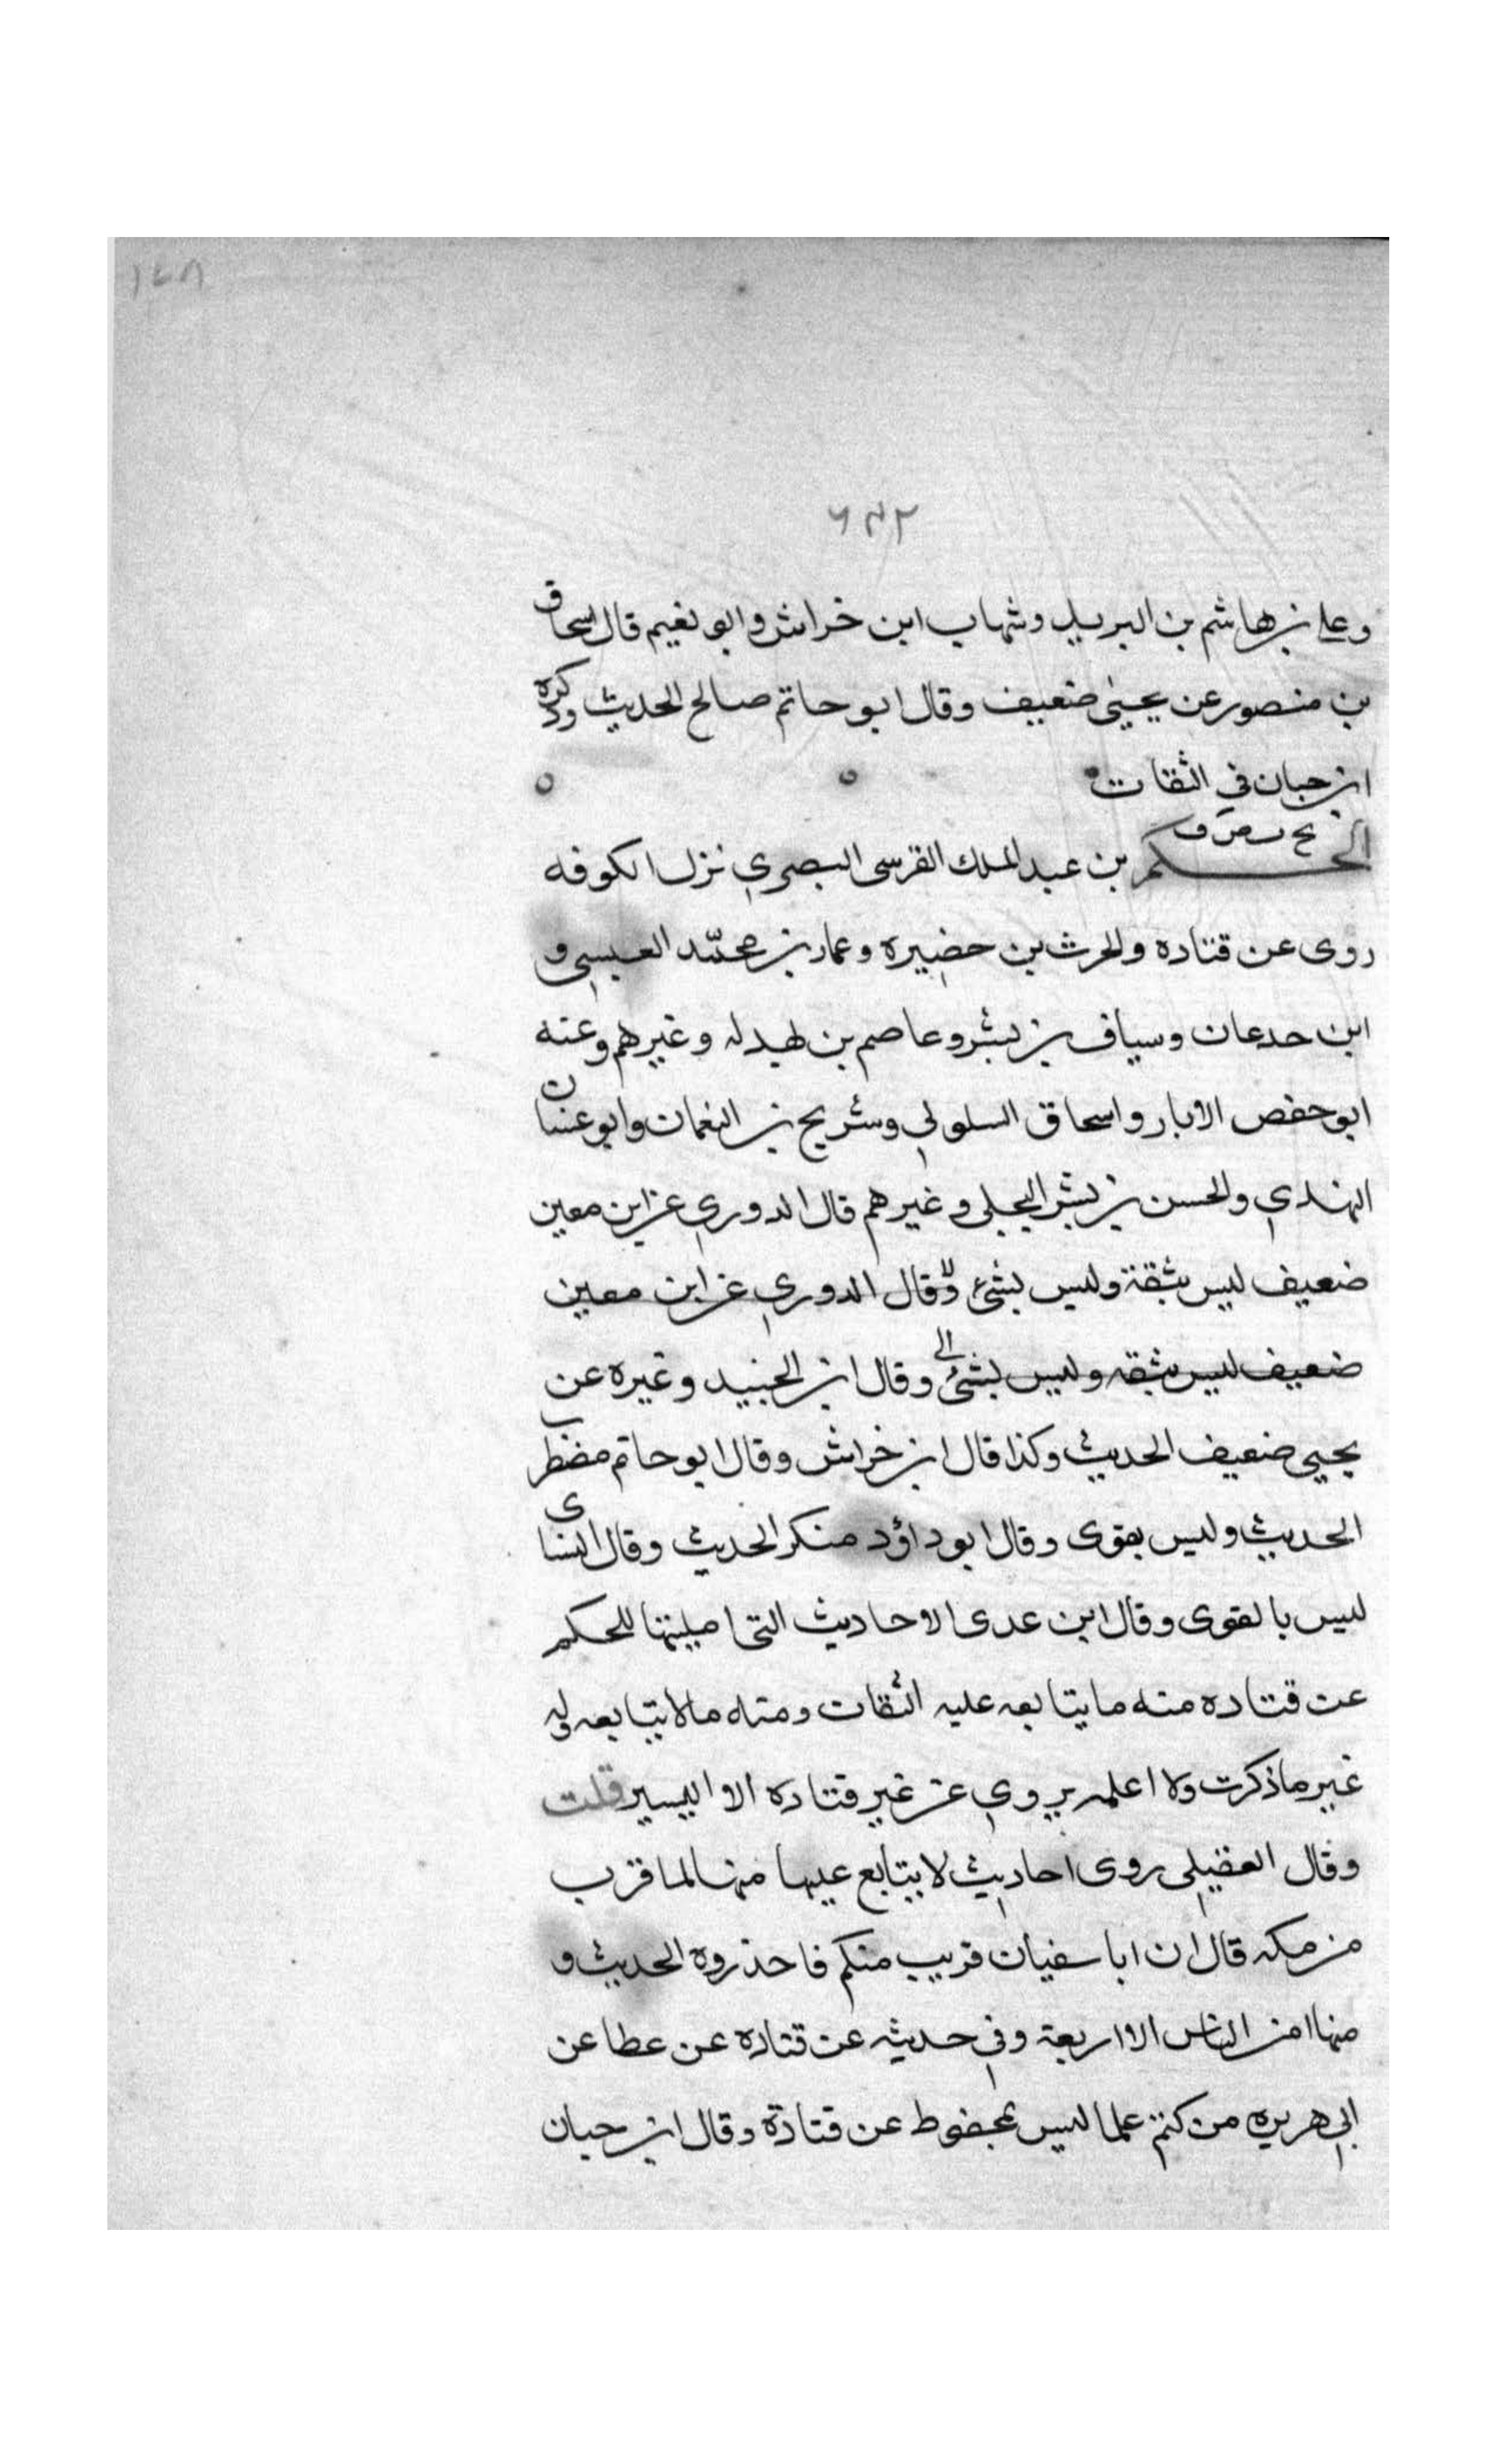 ١٤٨
٦٣٢
وعلى بن هاشم بن البريد وشهاب ابن خراش وابو نعيم قال اسحاق
بن منصور عن يحيى ضعيف وقال ابو حاتم صالح الحديث وذكره
ابن حبان في الثقات
بخ س ق
الحكم بن عبد الملك القرسى البصري نزل الكوفه
روى عن قتاده والحرث بن حضيره وعمار بن محمد العبسي و
ابن حدعان وسياف بن بشر وعاصم بن بهدله وغيرهم وعنه
ابو حفص الابار واسحاق السلولي وشريح بن النعمان وابو غسان
النهدي والحسن بن بشر البجلي وغيرهم قال الدوري عن ابن معين
ضعيف ليس بثقة وليس بشئ لا وقال الدوري عن ابن معين
ضعيف ليس بثقه وليس بشئ الى وقال ابن الجنيد وغيره عن
يحيى ضعيف الحديث وكذا قال ابن خراش وقال ابو حاتم مضطرب
الحديث وليس بقوى وقال ابو داؤد منكر الحديث وقال النساى
ليس بالقوى وقال ابن عدى الاحاديث التى امليتها للحكم
عن قتاده منه ما يتابعه عليه الثقات ومنه مالا يتابعه وله
غير ما ذكرت ولا اعلمه يروي عن غير قتاده الا اليسير قلت
وقال العقيلى روى احاديث لا يتابع عليها منها لما قرب
من مكه قال ان ابا سفيان قريب منكم فاحذروه الحديث و
منها امن الناس الا اربعة وفي حديثه عن قتاده عن عطا عن
ابي هريره من كتم علما ليس بمحفوظ عن قتادة وقال ابن حبان